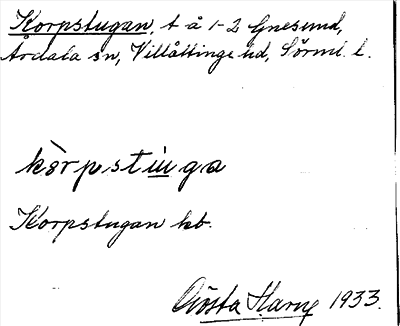 Korpstugan, t å 1-2 Gnesund,
Årdala sn, Villåttinge hd, Sörml. l.
kòrpstùga
Korpstugan kb.
Gösta Harng 1933.